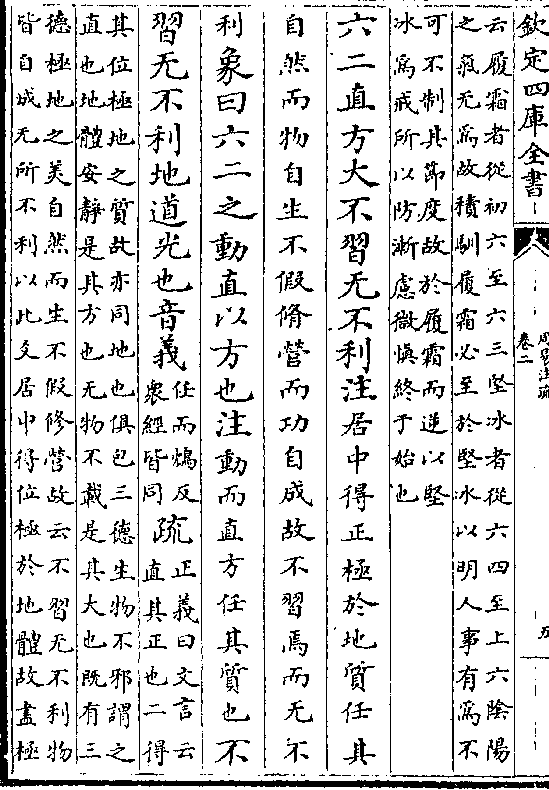 欽定四庫全書
周易注疏
卷二
五
云履霜者從初六至六三堅冰者從六四至上六陰陽
之氣无為故積馴履霜必至於堅冰以明人事有為不
可不制其節度故於履霜而逆以堅
冰為戒所以防漸慮微慎終于始也
六二直方大不習无不利注居中得正極於地質任其
自然而物自生不假脩營而功自成故不習焉而无不
利象曰六二之動直以方也注動而直方任其質也不
習无不利地道光也音義
任而鴆反
衆經皆同
疏
正義曰文言云
直其正也二得
其位極地之質故亦同地也俱包三德生物不邪謂之
直也地體安靜是其方也无物不載是其大也既有三
德極地之美自然而生不假修營故云不習无不利物
皆自成无所不利以此爻居中得位極於地體故盡極